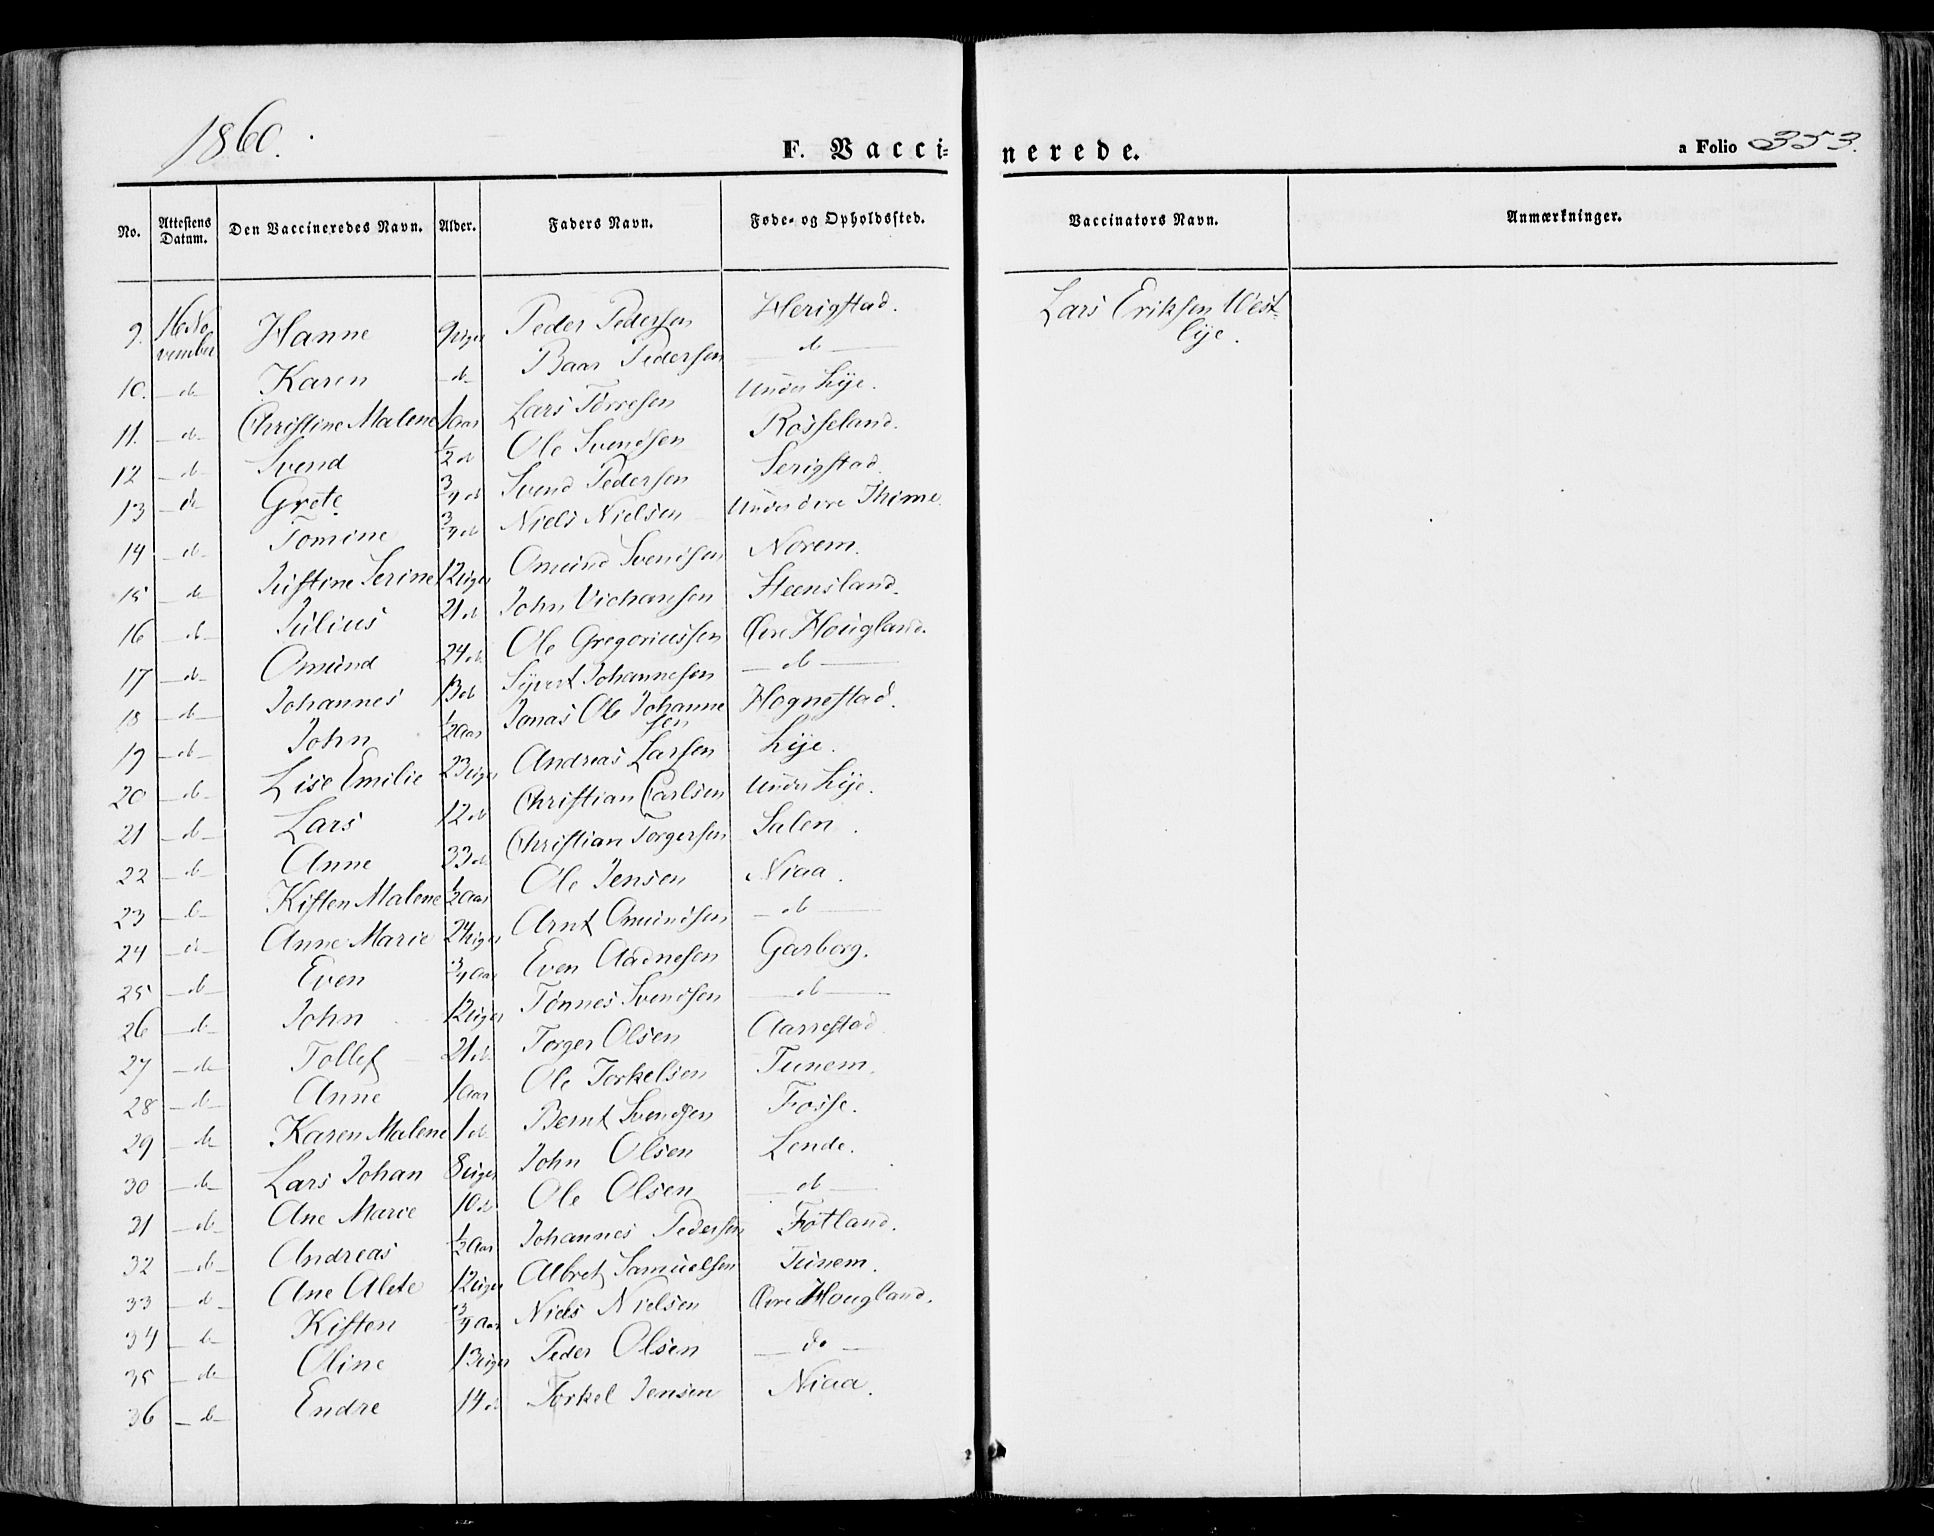 1860.
F. Vaccinerede.
a Folio 353.
No. | Attestens Datum. | Den Vaccineredes Navn. | Alder. | Faders Navn. | Føde- og Opholdssted. | Vaccinators Navn. | Anmærkninger.
9. | 16 November | Hanne | 9 uger | Peder Pedersen | Herigstad. | Lars Eriksen Westlye.
10. | d | Karen | d | Baar Pedersen | d
11. | d | Christine Malene | 1 aar | Lars Torresen | Under Lye.
12 | d | Svend | 1/2 d | Ole Svendsen | Rosseland.
13 | d | Grete | 3/4 d | Svend Pedersen | Serigstad.
14 | d | Tomine | 3/4 d | Niels Nielsen | Under övre Thime.
15 | d | Justine Serine | 12 uger | Omund Svendsen | Norem.
16 | d | Julius | 21 d | John Vichansen | Steensland.
17 | d | Omund | 24 d | Ole Gregoriussen | Övre Hougland.
18 | d | Johannes | 13 d | Syvert Johannesen | d
19 | d | John | 1/2 aar | Jonas Ole Johannesen | Hognestad.
20 | d | Lise Emilie | 23 uger | Andreas Larsen | Lye.
21 | d | Lars | 12 d | Christian Carlsen | Under Lye.
22 | d | Anne | 33 d | Christian Torgersen | Salen.
23 | d | Kisten Malene | 1/2 aar | Ole Jensen | Niaa.
24 | d | Anne Marie | 24 uger | Arnt Omundsen | d
25 | d | Even | 3/4 aar | Even Aadnesen | Garborg.
26 | d | John | 12 uger | Tönnes Svendsen | d
27 | d | Tollef | 21 d | Torger Olsen | Aarrestad
28 | d | Anne | 1 aar | Ole Torkelsen | Tunem.
29 | d | Karen Malene | 1 d | Bernt Svendsen | Fosse.
30 | d | Lars Johan | 8 uger | John Olsen | Lende.
31 | d | Ane Marie | 10 d | Ole Olsen | d
32 | d | Andreas | 1/2 aar | Johannes Pedersen | Fotland.
33 | d | Ane Alete | 12 uger | Albret Samuelsen | Tunem.
34 | d | Kisten | 3/4 aar | Niels Nielsen | Övre Hougland.
35 | d | Oline | 13 uger | Peder Olsen | do
36 | d | Endre | 14 d | Torkel Jensen | Niaa.